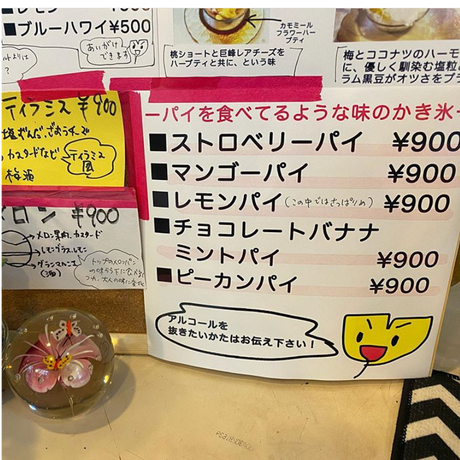 ■レモン ¥500
■ブルーハワイ ¥500
あいがけ
できます
カモミール
フラワーハー
ブティ
桃ショートと巨峰レアチーズを
ハーブティと共に、という味
梅とココナツのハーモ
に、優しく馴染む塩粒と
ラム黒豆がオツさをプラ
ティラミス ¥900
塩ずんだ、ごおうチーズ
カスタードなど
梅酒
ティラミス
風
メロン ¥900
メロン果肉、カスタード
レモングラス、レモン
グランマルニエ
(酒)
トップのメロンパン
ーパイを食べてるような味のかき氷ー
■ストロベリーパイ ¥900
■マンゴーパイ ¥900
■レモンパイ(この中ではさっぱりめ) ¥900
■チョコレートバナナ
ミントパイ ¥900
■ピーカンパイ ¥900
アルコールを
抜きたいかたはお伝え下さい!